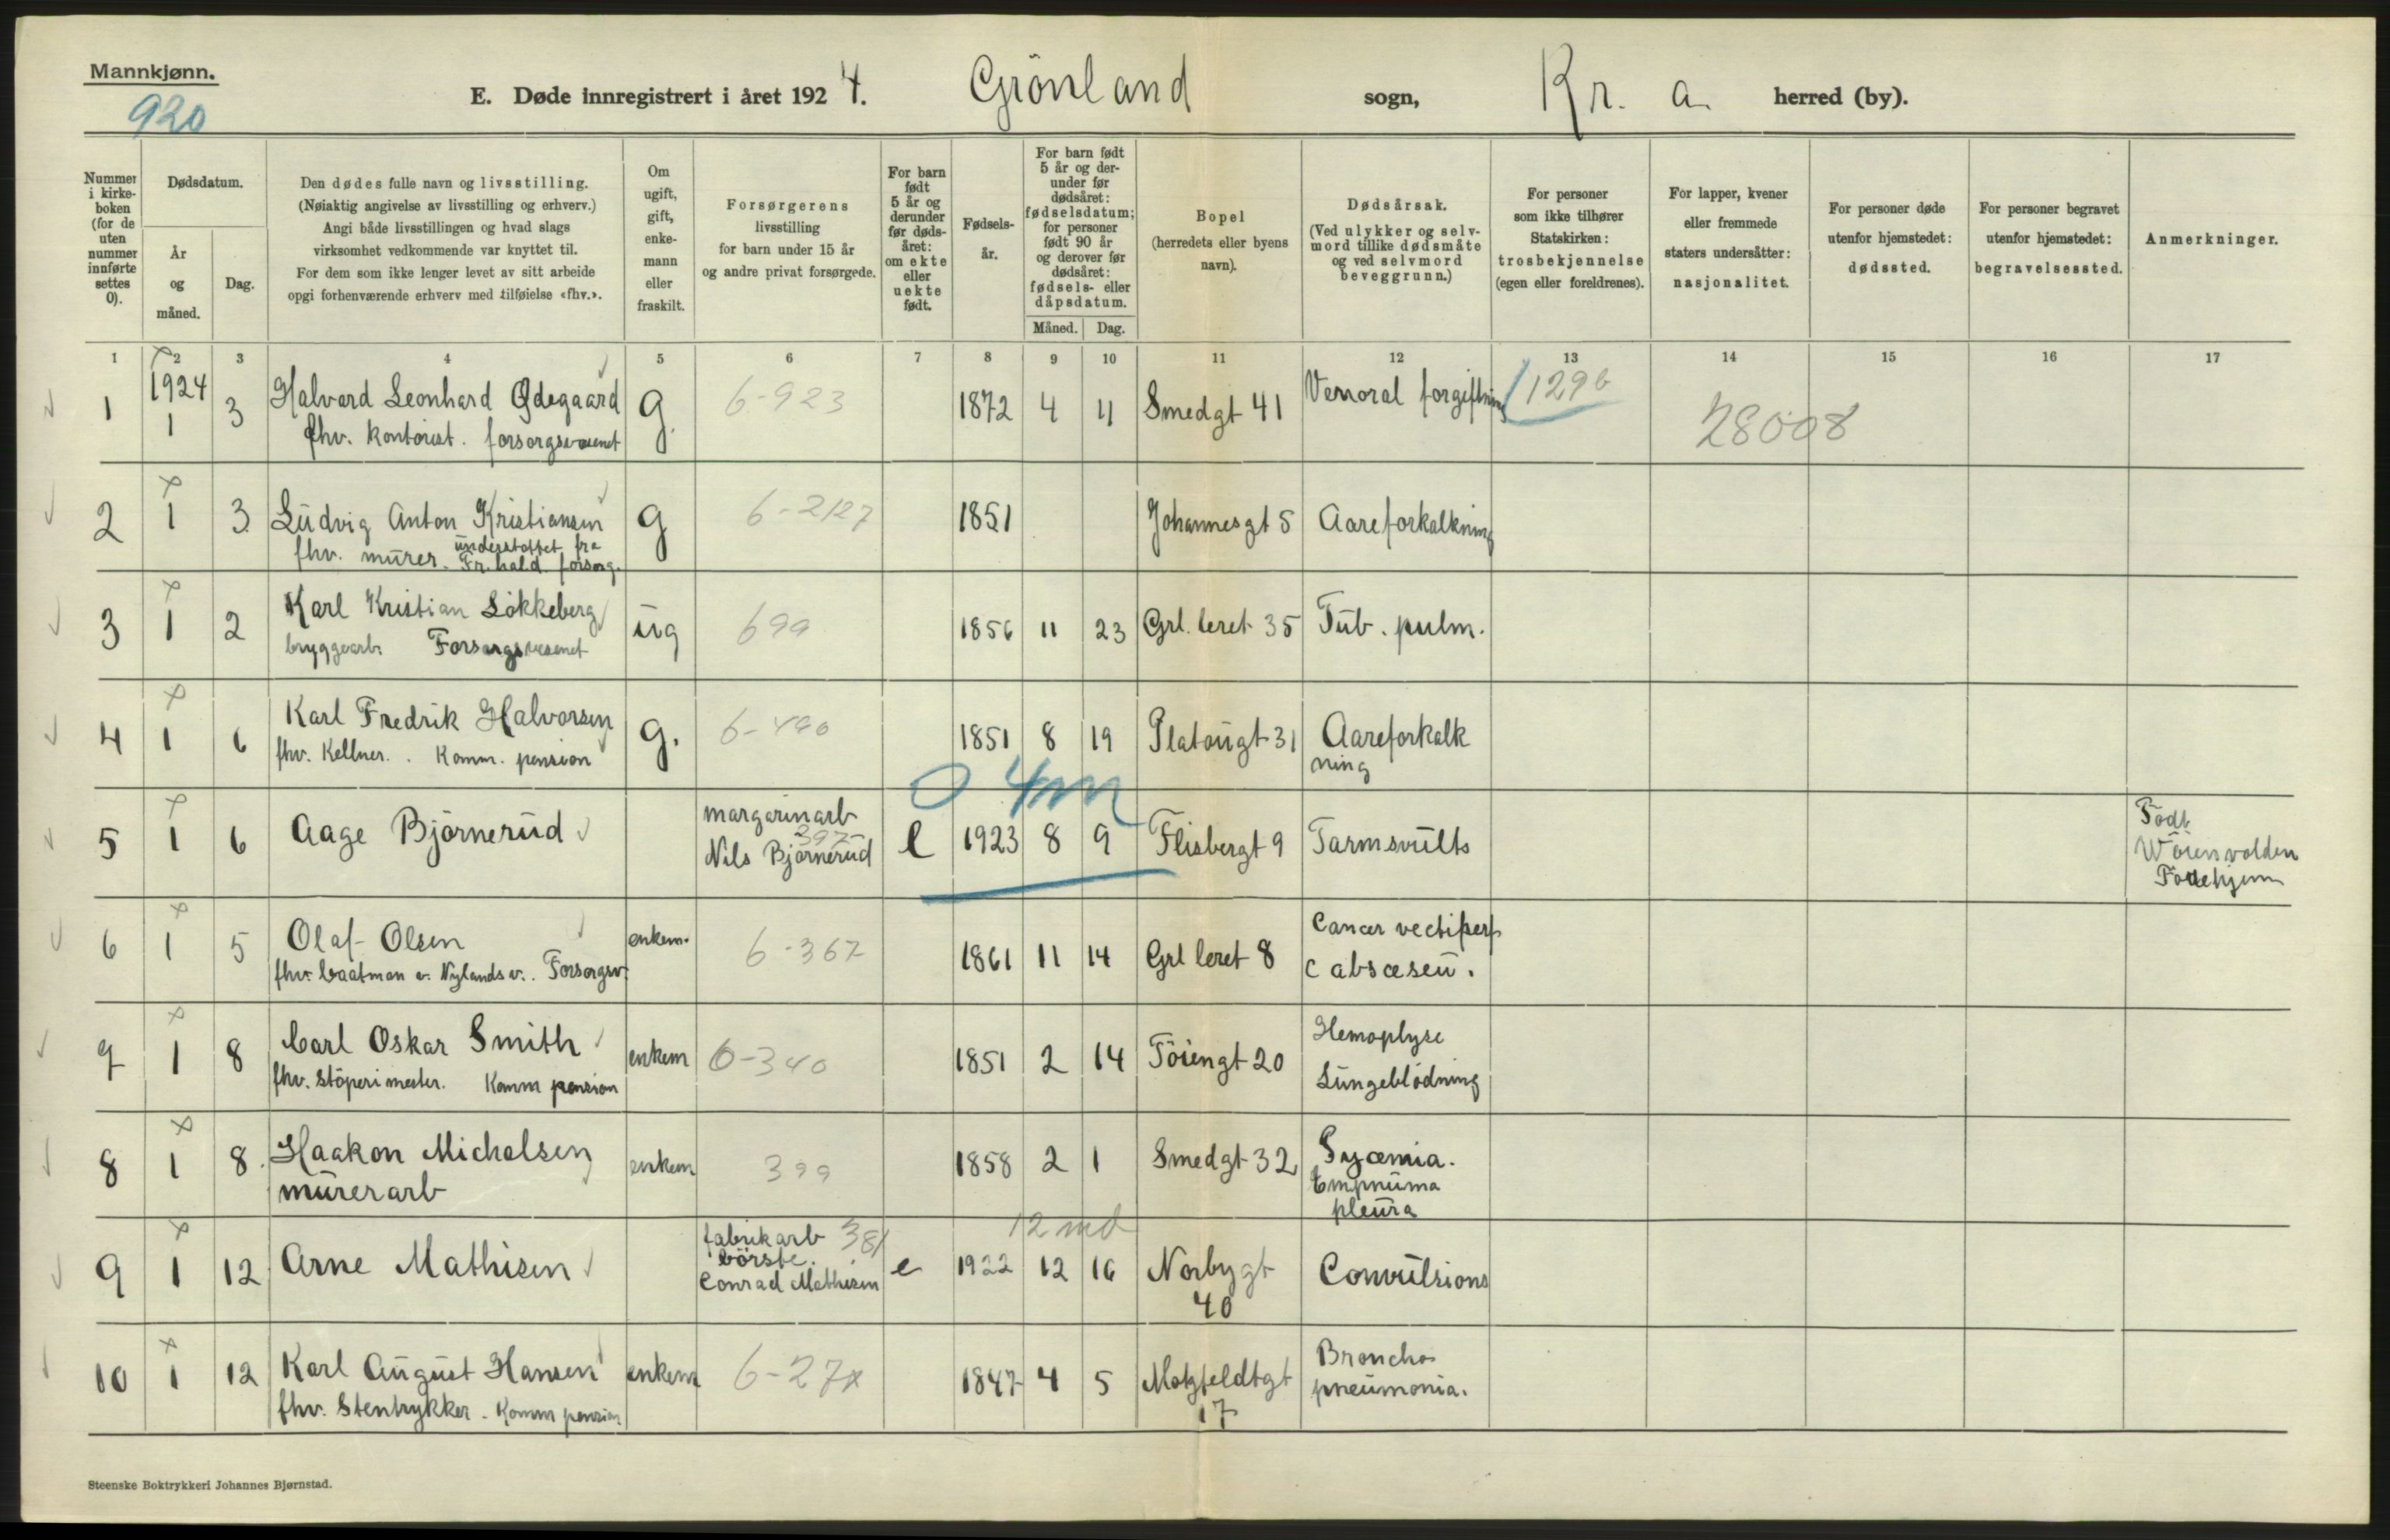 Mannkjønn.
920
E. Døde innregistrert i året 1924. Grönland sogn, Kr. a. herred (by).
Nummer i kirke- boken (for de uten nummer innførte settes 0).
Dødsdatum.
År og måned.
Dag.
Den dødes fulle navn og livsstilling.
(Nøiaktig angivelse av livsstilling og erhverv.)
Angi både livsstillingen og hvad slags
virksomhet vedkommende var knyttet til.
For dem som ikke lenger levet av sitt arbeide
opgi forhenværende erhverv med tilføielse «fhv.».
Om ugift, gift, enke- mann eller fraskilt.
Forsørgerens
livsstilling
for barn under 15 år
og andre privat forsørgede.
For barn født 5 år og derunder før døds- året: om ekte eller uekte født.
Fødsels- år.
For barn født 5 år og der- under før dødsåret: fødselsdatum; for personer født 90 år og derover før dødsåret: fødsels- eller dåpsdatum.
Måned. Dag.
Bopel
(herredets eller byens
navn).
Dødsårsak.
(Ved ulykker og selv-
mord tillike dødsmåte
og ved selvmord
beveggrunn.)
For personer
som ikke tilhører
Statskirken:
trosbekjennelse
(egen eller foreldrenes).
For lapper, kvener
eller fremmede
staters undersåtter:
nasjonalitet.
For personer døde
utenfor hjemstedet:
dødssted.
For personer begravet
utenfor hjemstedet:
begravelsessted.
Anmerkninger.
1 2 3 4 5 6 7 8 9 10 11 12 13 14 15 16 17
1 1924 1 3 Halvard Leonhard Ødegaard g. 6-923 1872 4 11 Smedgt 41 forgiftning 129b 28008
fhv. kontorist. forsorgsvæsenet
2 1 3 Ludvig Anton Kristiansen g 6-2127 1851 Johannesgt 5 Aareforkalkning
fhv. murer. understøttet fra
Fr.hald forsorg.
3 1 2 Karl Kristian Lökkeberg ug 699 1856 11 23 Grl. leret 35 Tub. pulm.
bryggearb. Forsorgsvesenet
4 1 6 Karl Fredrik Halvorsen g. 6-490 1851 8 19 Platougt 31 Aareforkalk
ning
fhv. Kellner. Komm. pension
0 4m
5 1 6 Aage Björnerud margarinarb
397
Nils Björnerud e 1923 8 9 Flisbergt 9 Tarmsvults Födt
Wöienvolden
Födehjem
6 1 5 Olaf Olsen enkem. 6-367 1861 11 14 Grl leret 8 Cancer
c abscesen.
fhv. baatman v. Nylands v. Forsorgsv.
7 1 8 Carl Oskar Smith enkem 6-340 1851 2 14 Töiengt 20 Hemoptyse
Lungeblödning
fhv. Stöperimester. Komm pension
8 1 8 Haakon Michalsen enkem 399 1858 2 1 Smedgt 32 Pyæmia.
Empnuma
pleura
murerarb
12 md
9 1 12 Arne Mathisen fabrikarb 381
börste.
Conrad Mathisen e 1922 12 16 Norbygt
40 Convulsions
10 1 12 Karl August Hansen enkem 6-27x 1847 4 5 Motzfeldtgt
17 Broncho
pneumonia.
fhv. Stentrykker. Komm pension
Steenske Boktrykkeri Johannes Bjørnstad.